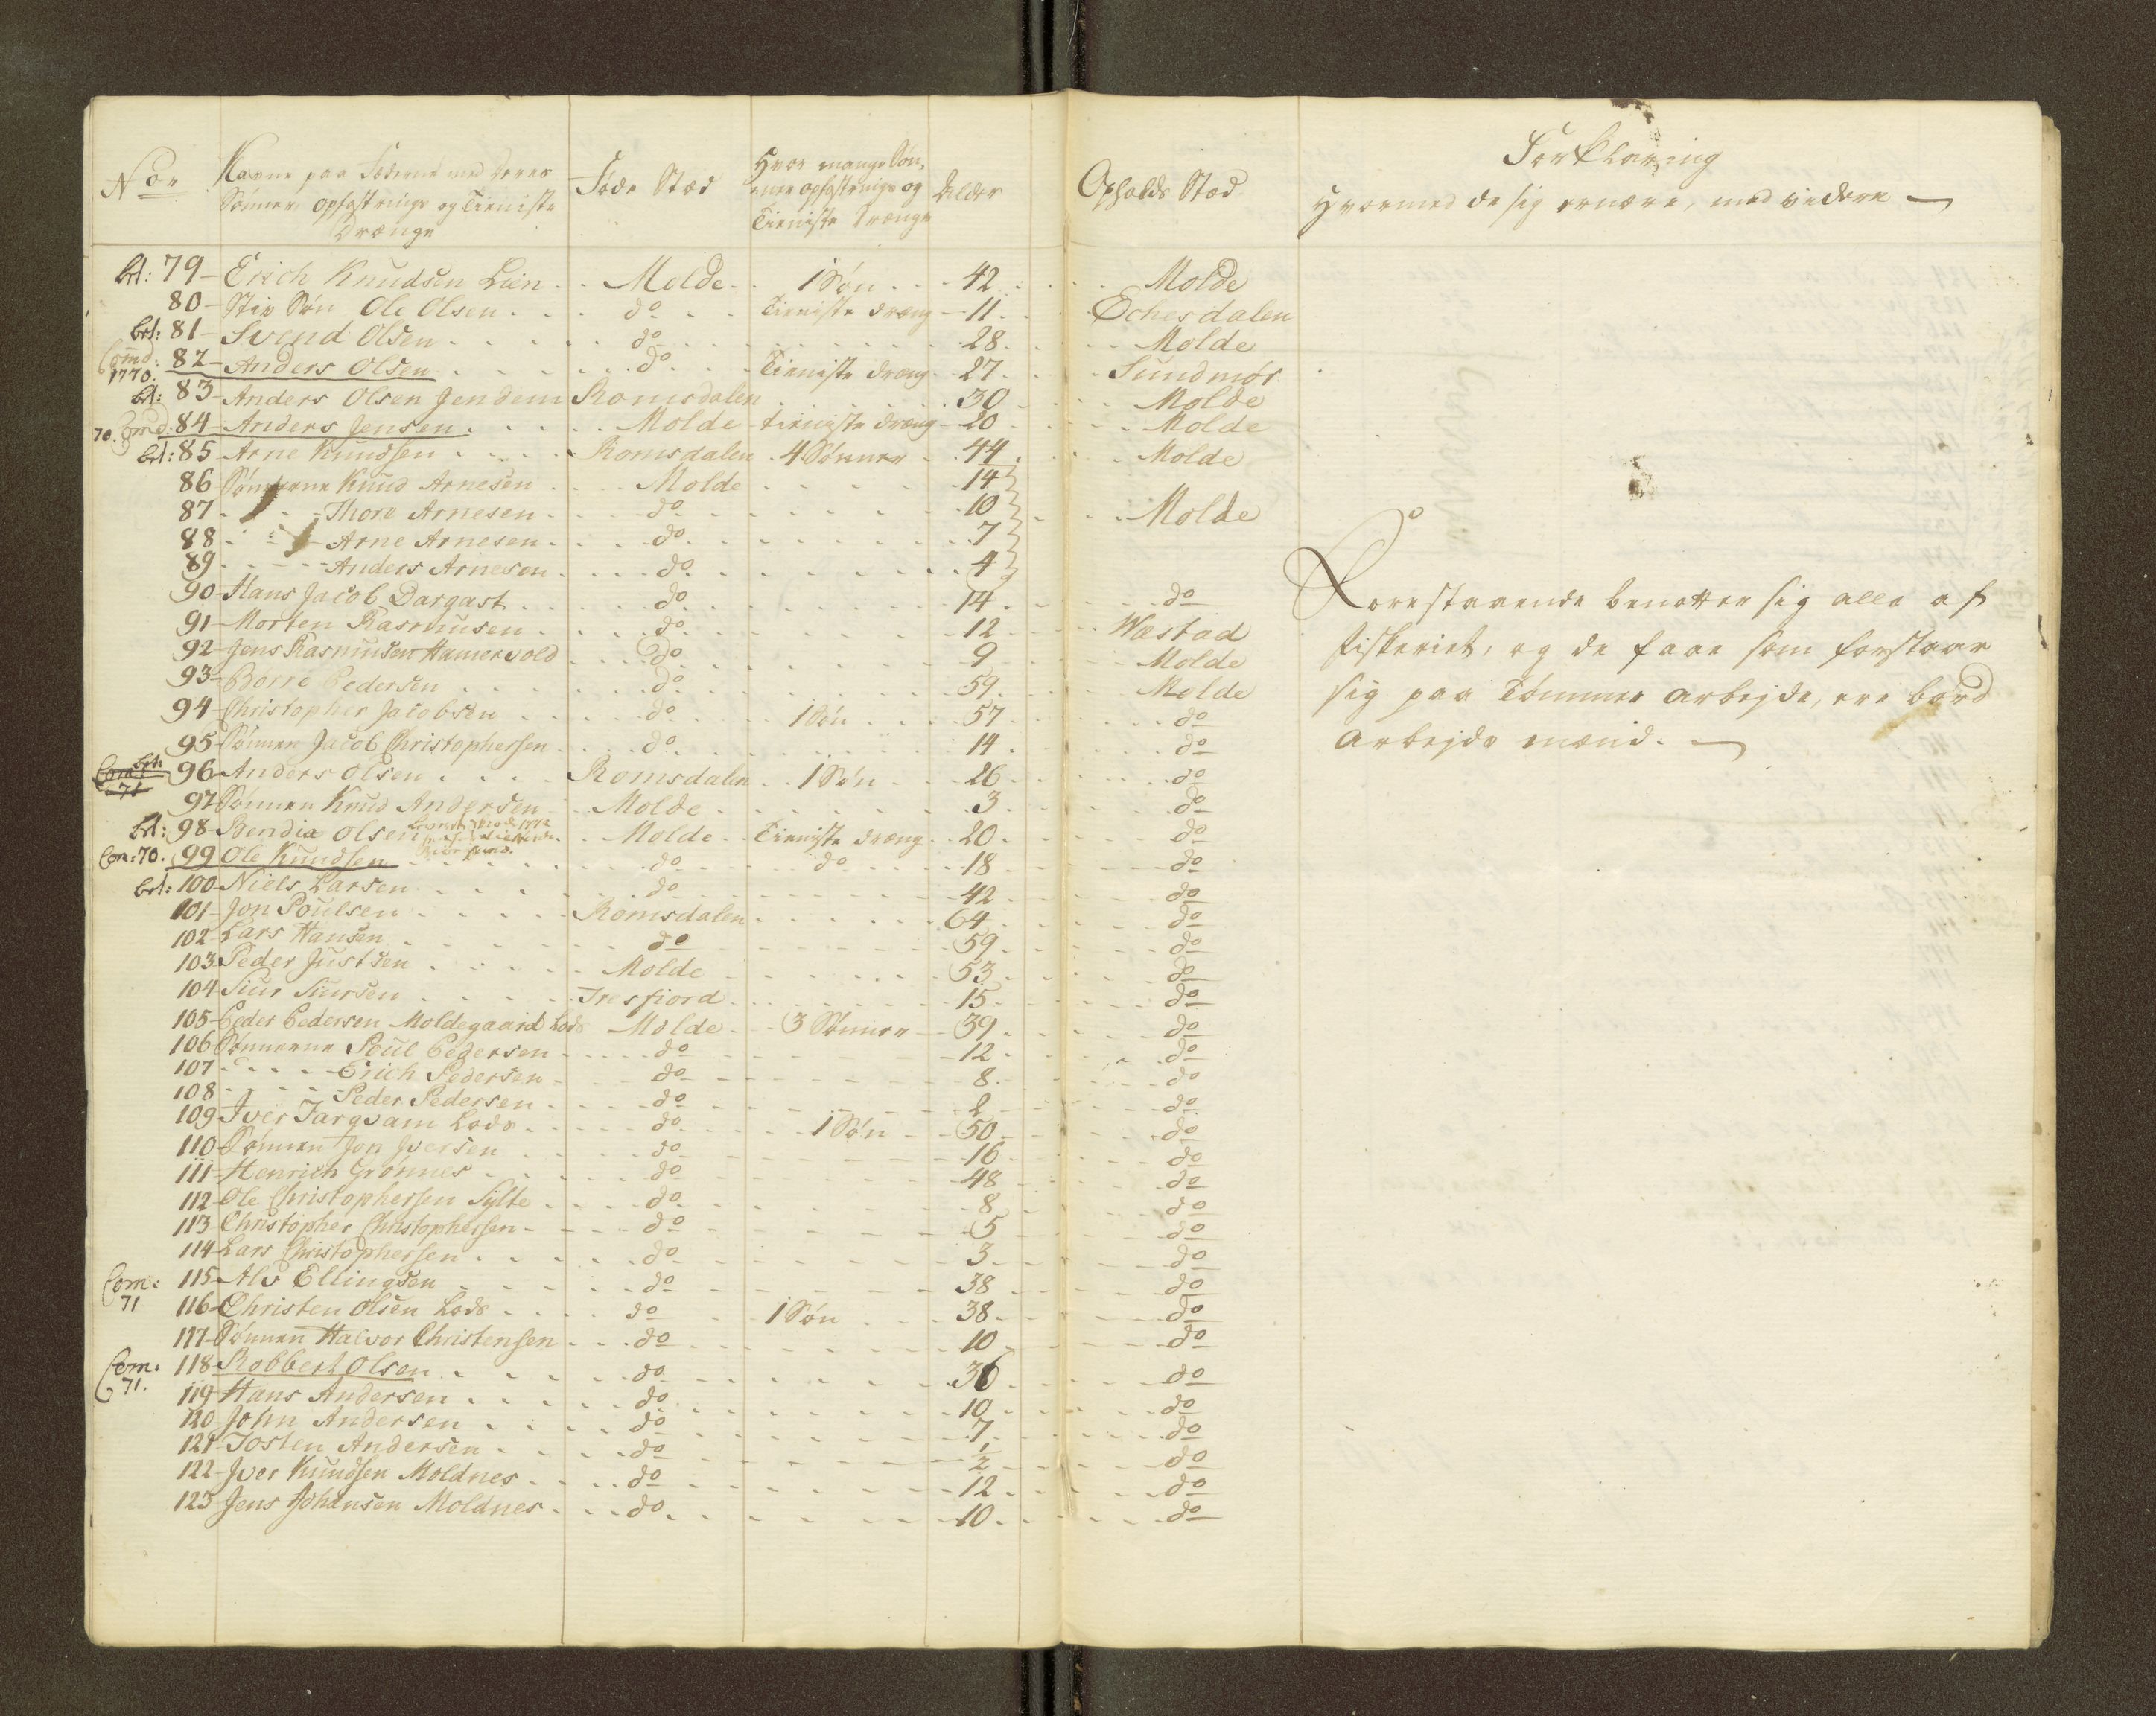 No
Navne paa Fædrene med deres
Sønner, opfostrings og Tieniste
Drænge
Føde Stæd
Hvor mange Søn-
ner opfostrings og
Tieniste Drænge
Alder
Opholds Stæd
Forklaring
Hvormed de sig ernære, med videre
brl: 79 Erich Knudsen Lien Molde 1 Søn 42 Molde
80 Stiv Søn Ole Olsen do Tieniste dræng 11 Echesdalen
brl: 81 Svend Olsen do 28 Molde
Comd: 1770. 82 Anders Olsen do Tieniste dræng 27 Sundmør
brl: 83 Anders Olsen Jendem Romsdalen 30 Molde
70. Comd. 84 Anders Jensen Molde tieniste dræng 20 Molde
brl: 85 Arne Knudsen Romsdalen 4 Sønner 44 Molde
86 Sønnerne Knud Arnesen Molde 14
87 Thore Arnesen do 10 Molde
88 Arne Arnesen do 7
89 Anders Arnesen do 4
90 Hans Jacob Dargast do 14 do
91 Morten Rasmusen do 12 Wæstad
92 Jens Rasmusen Hamervold do 9 Molde
93 Borre Pedersen do 59 Molde
94 Christopher Jacobsen do 1 Søn 57 do
95 Sønnen Jacob Christophersen do 14 do
Com: 71 brl: 96 Anders Olsen Romsdalen 1 Søn 26 do
97 Sønnen Knud Andersen Molde 3 do
brl: 98 Bendix Olsen Molde Tieniste dræng 20 do
Com: 70. 99 Ole Knudsen do do 18 do
brl: 100 Niels Larsen do 42 do
101 Jon Poulsen Romsdalen 64 do
102 Lars Hansen do 59 do
103 Peder Justsen Molde 53 do
104 Siur Siursen Tresfiord 15 do
105 Peder Pedersen Moldegaard Lods Molde 3 Sønner 39 do
106 Sønnerne Poul Pedersen do 12 do
107 Erich Pedersen do 8 do
108 Peder Pedersen do 2 do
109 Iver Jargvam Lods do 1 Søn 50 do
110 Sønnen Jon Iversen do 16 do
111 Henrich Grønnes do 48 do
112 Ole Christophersen Sylte do 8 do
113 Christopher Christophersen do 5 do
114 Lars Christophersen do 3 do
Com: 71 115 Alv Ellingsen do 38 do
116 Christen Olsen Lods do 1 Søn 38 do
117 Sønnen Halvor Christensen do 10 do
Com: 71. 118 Robbert Olsen do 36 do
119 Hans Andersen do 10 do
120 John Andersen do 7 do
121 Josten Andersen do 1/2 do
122 Iver Knudsen Moldnes do 12 do
123 Jens Johansen Moldnes do 10 do
Forestaaende benetter sig alle af
fiskeriet, og de faae som forstaar
sig paa Tømmer arbejde, ere bord
arbejds mænd.